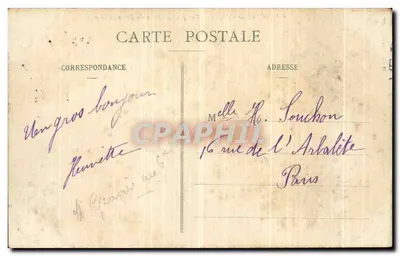 CARTE POSTALE
CORRESPONDANCE
ADRESSE
Un gros bonjour
Henriette
Melle H. Souchon
16 rue de l'Arbalète
Paris
CPAPHIL